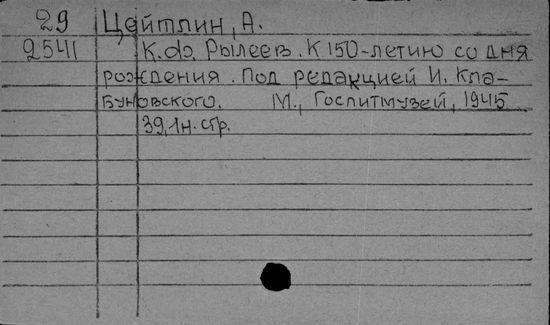 29 Цейтлин, А.
2541 К.Ф. Рылеев. К 150-летию со дня
рождения. Под редакцией И. Кла-
буновского. М., Гослитмузей, 1945
39, 1 н. стр.